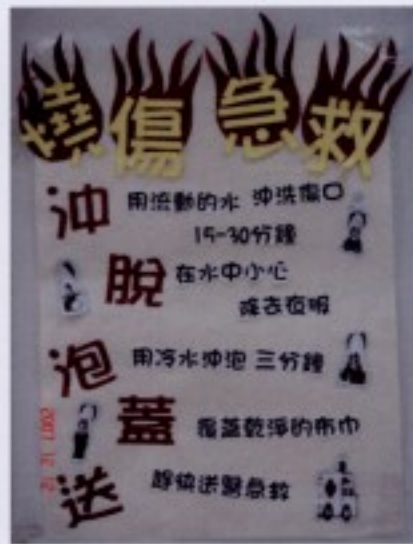 燒傷急救
沖 用流動的水 沖洗傷口
15-30分鐘
脫 在水中小心
除去衣服
泡 用冷水沖泡 三分鐘
蓋 覆蓋乾淨的布巾
送 趕快送醫急救